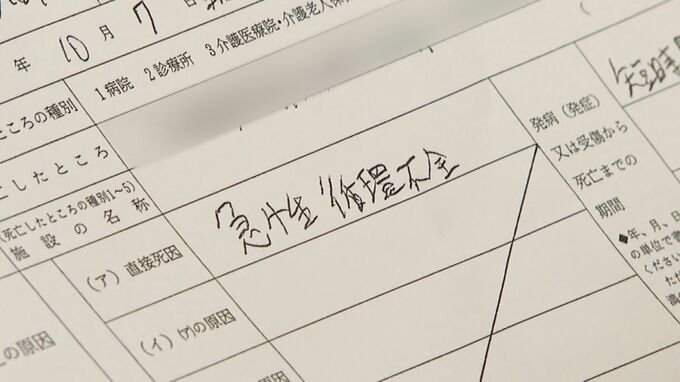 年 10 月 7 日
1 病院 2 診療所 3 介護医療院・介護老人保
ところの種別
亡したところ
(死亡したところの種別1~5)
施設の名称
(ア) 直接死因
急性循環不全
(イ) (ア)の原因
の原因
発病(発症)
又は受傷から
死亡までの
期間
短時
◆年、月、日
の単位で書
ください
ただ